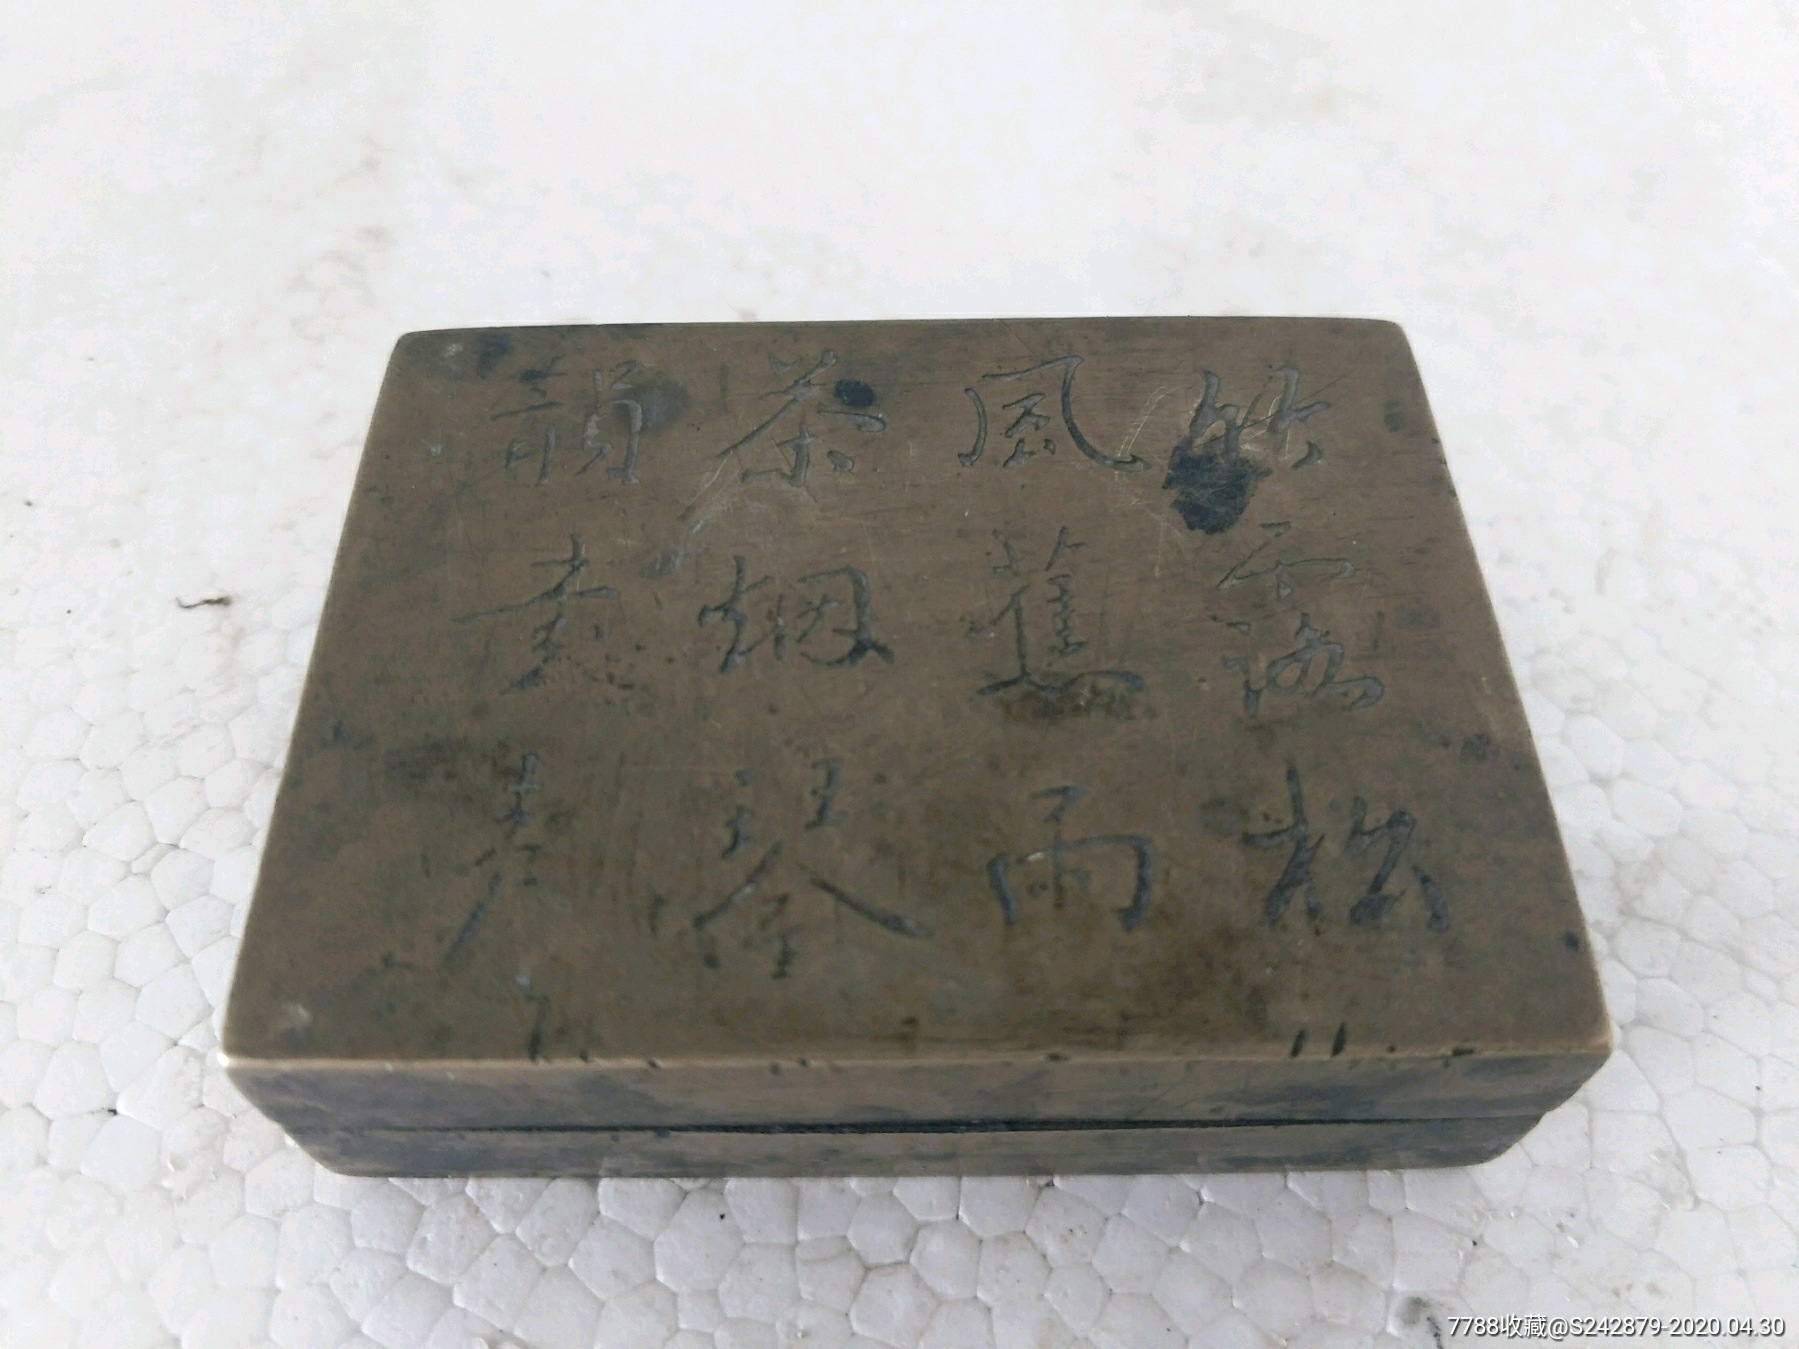 竹露松
風蕉雨
茶烟琴
韻書聲
7788收藏@S242879-2020.04.30